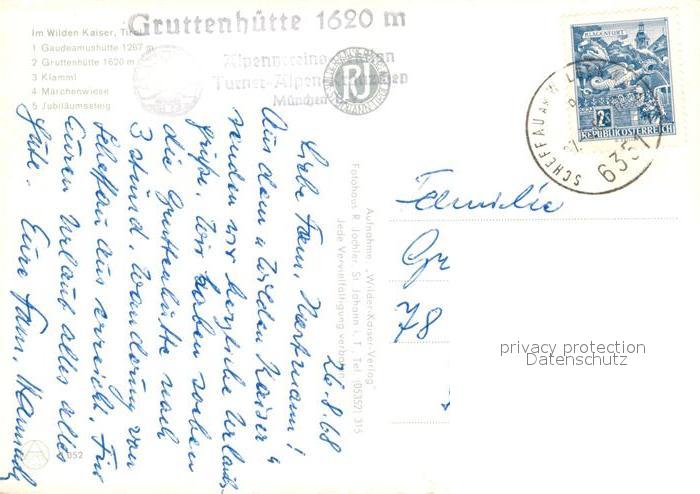 Gruttenhütte 1620 m
Alpenvereins
Turner-Alpen-Kränzchen
München
Im Wilden Kaiser, Tirol
1 Gaudeamushütte 1267 m
2 Gruttenhütte 1620 m
3 Klamml
4 Märchenwiese
5 Jubiläumssteig
KLAGENFURT
2S
REPUBLIK ÖSTERREICH
SCHEFFAU AM W.
6351
26.8.68
Liebe Fam. Hartmann!
Aus dem "Wilden Kaiser"
senden wir herzliche Urlaubs-
grüße. Wir haben soeben
die Gruttenhütte nach
3 stünd. Wanderung von
Scheffau aus erreicht. Für
Euren Urlaub alles alles
Gute. Eure Fam.
Aufnahme „Wilder-Kaiser-Verlag"
Fotohaus R. Jöchler, St. Johann i. T., Tel. (05352) 315
Jede Vervielfältigung verboten
052
Familie
Gr
78
privacy protection
Datenschutz